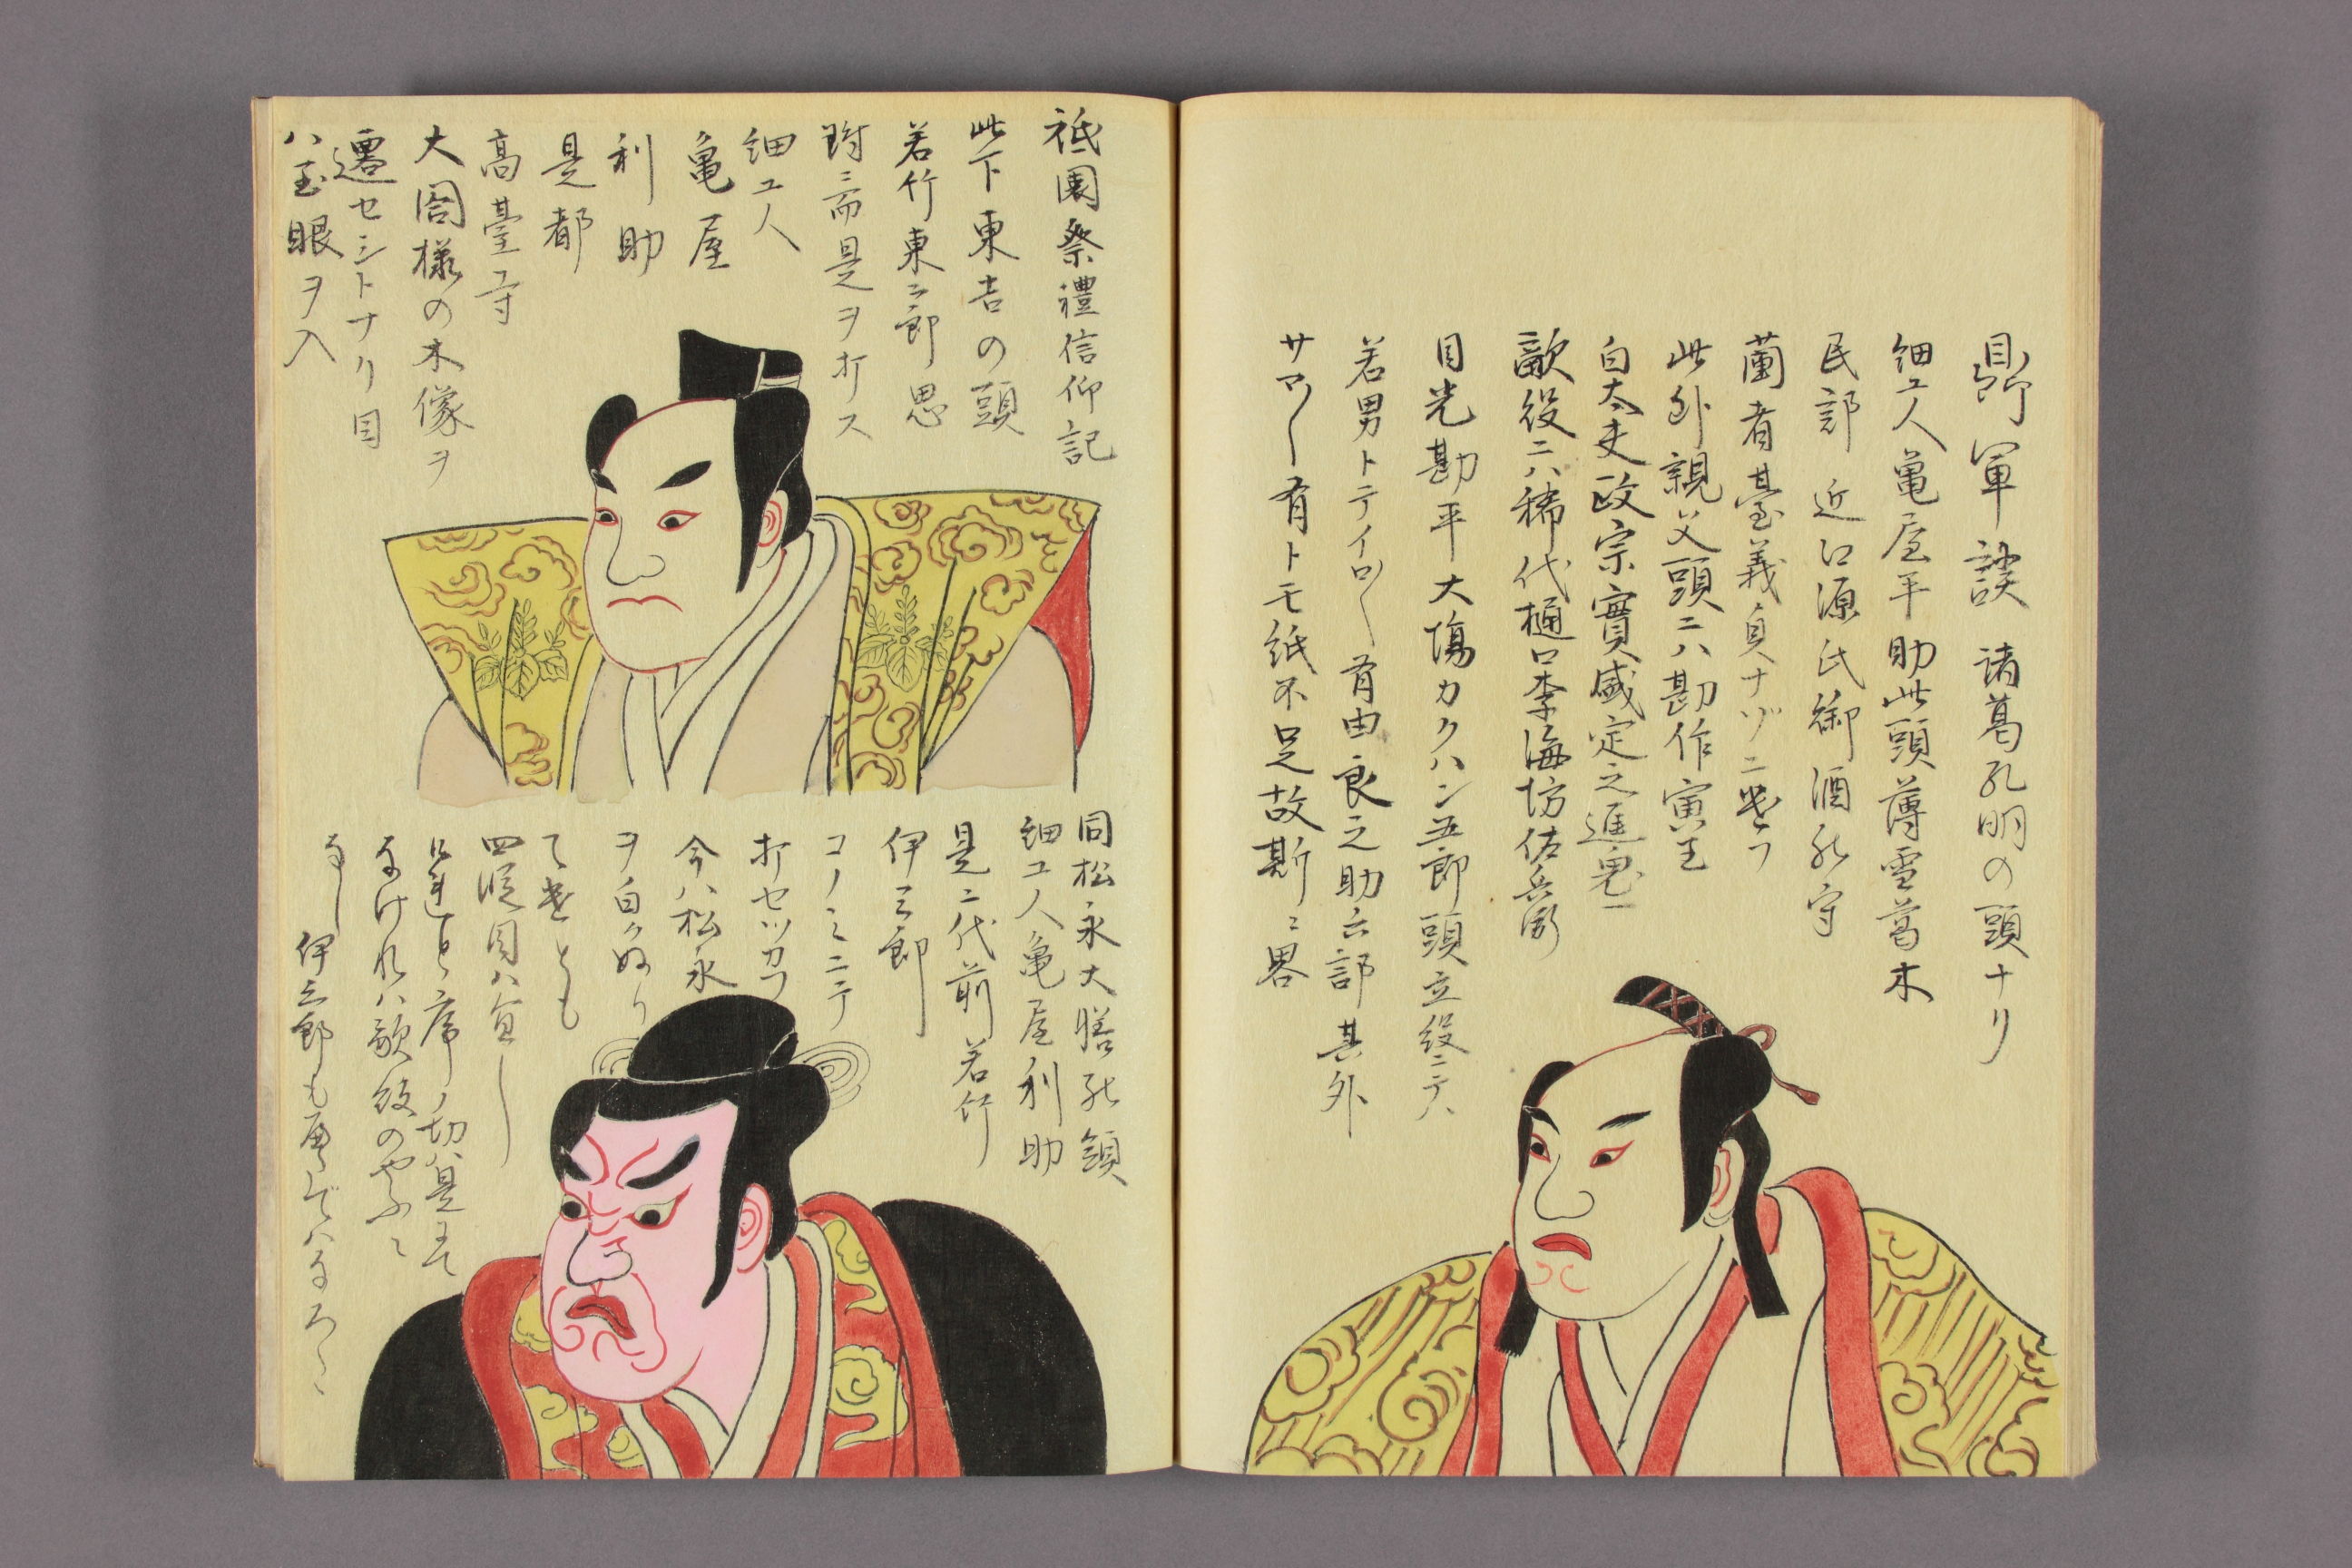 鼎軍談 諸葛孔明の頭ナリ
細工人亀屋平助此頭薄雪葛木
民部 近江源氏御酒
蘭者臺義貞ナゾニ
此外親父頭ニハ勘作寅王
白太夫政宗實盛定之進鬼一
敵役ニハ稀代樋口李海坊佐兵衛
目光勘平大塲カクハン五郎頭立役ニテハ
若男トテイロ〱有由良之助六部其外
サマ〱有トモ紙不足故斯ニ畧
祗園祭禮信仰記
此下東吉の頭
若竹東二郎思
附ニ而是ヲ打ス
細工人
亀屋
利助
是都
高臺寺
大閤様の木像ヲ
遷セシトナリ目
ハ玉眼ヲ入
同松永大膳
細工人亀屋利助
是二代前若竹
伊三郎
コノミニテ
打セツカフ
今ハ松永
ヲ白クぬり
て遣とも
四段目ハ宜し
なけれハ敵役のやふニ
なし 伊三郎も